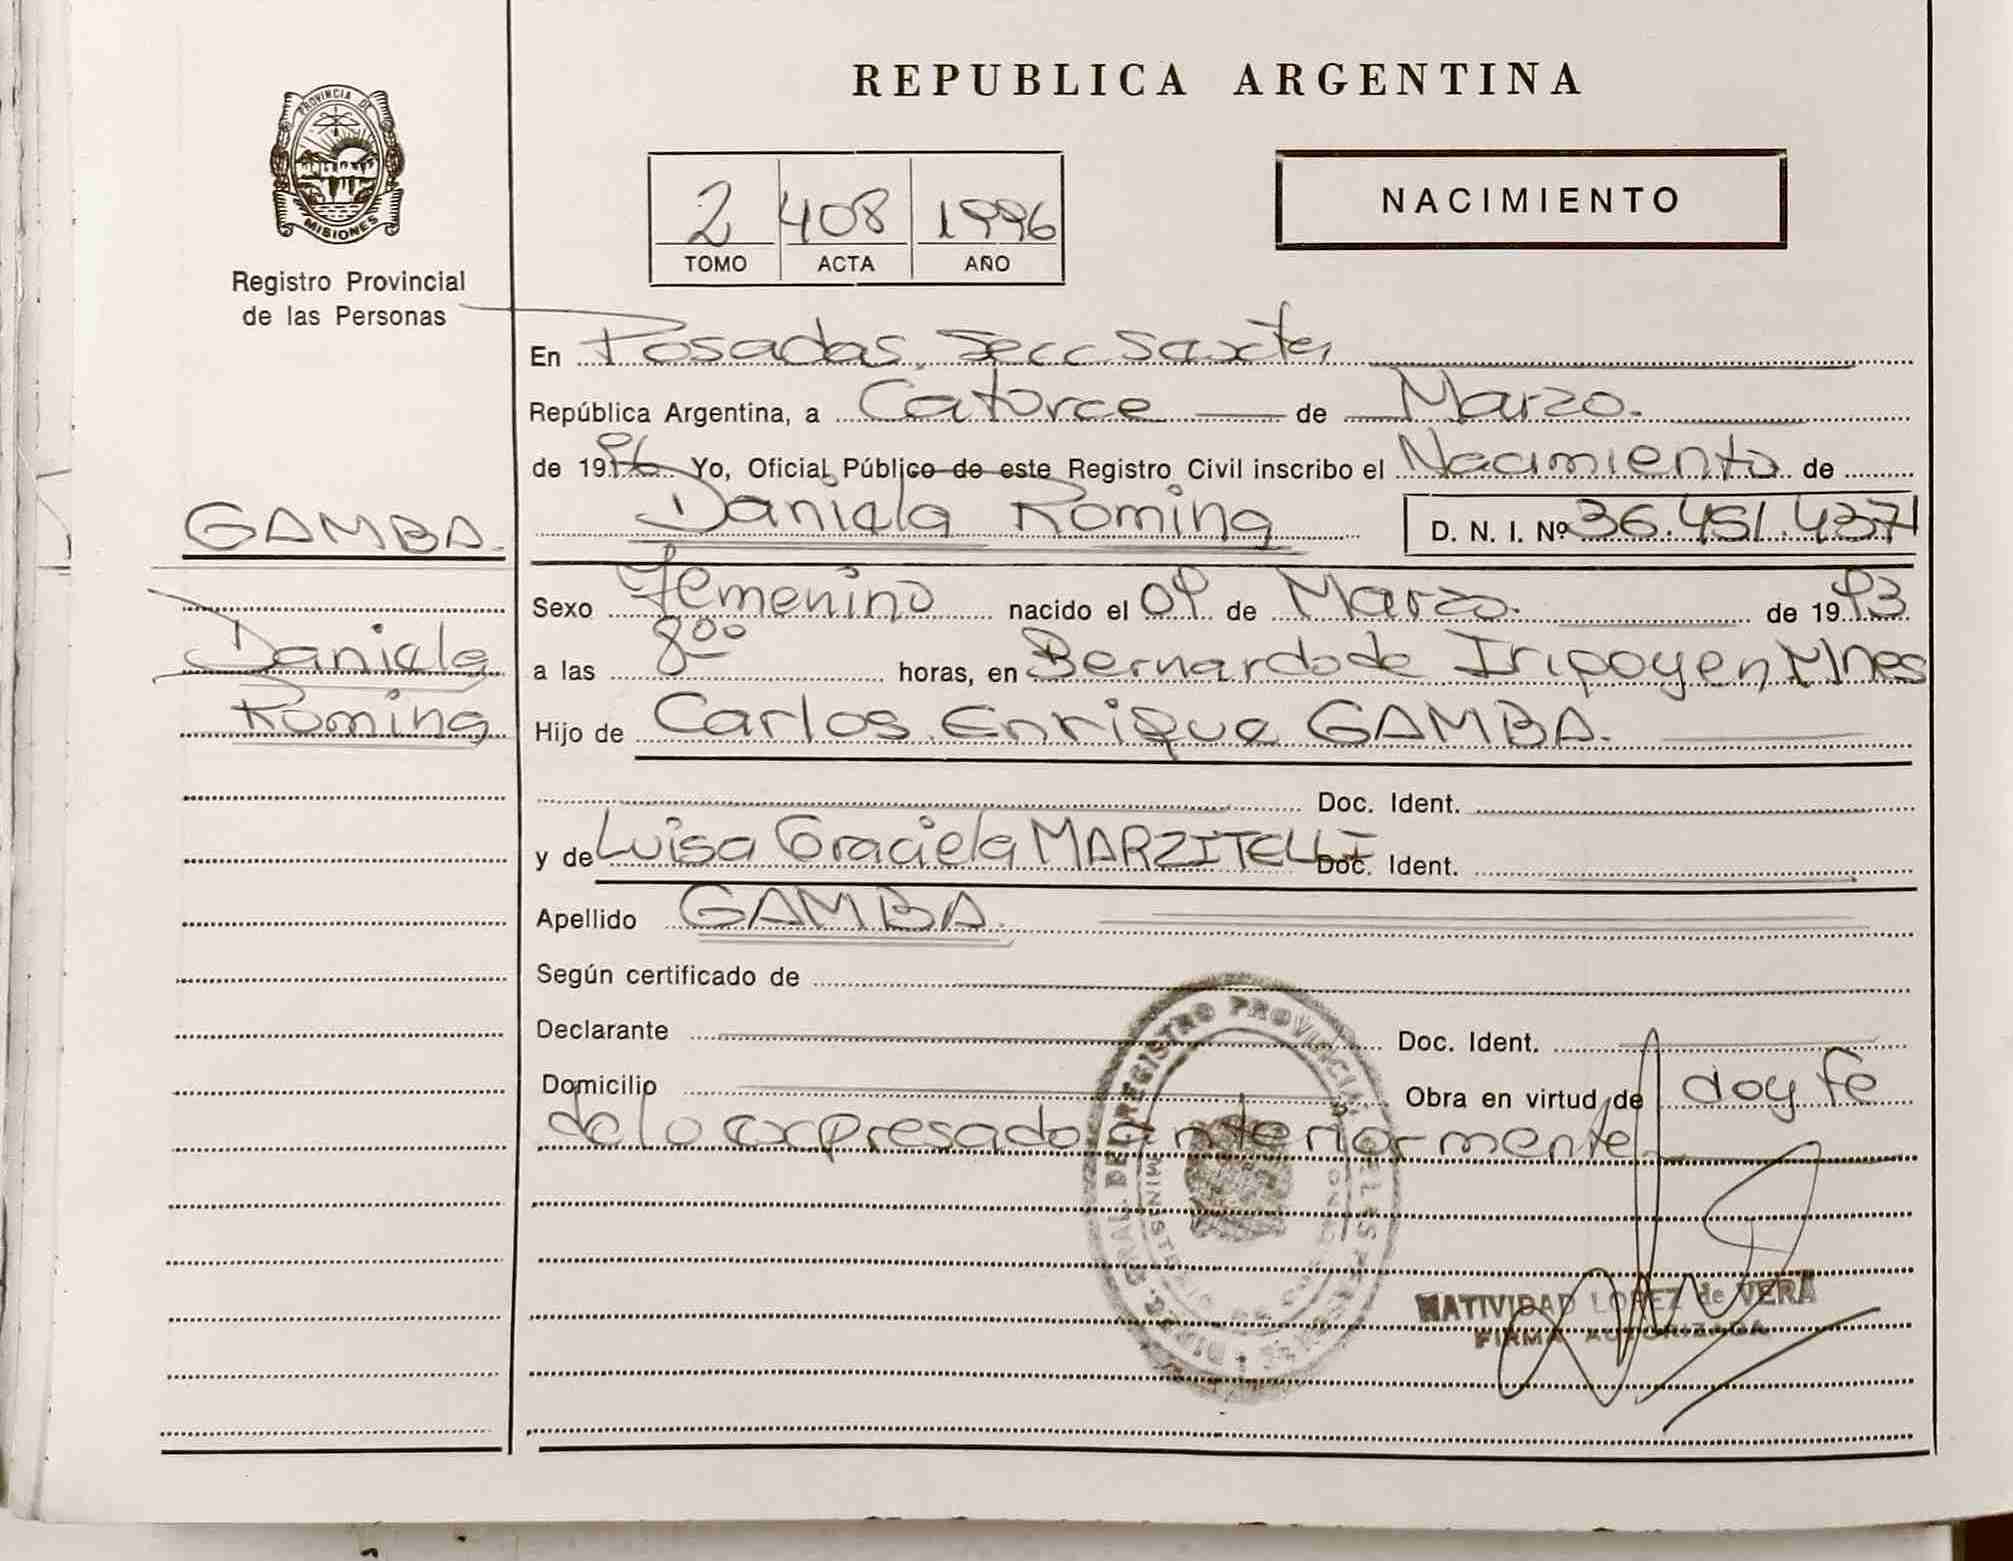 REPUBLICA ARGENTINA
PROVINCIA DE
MISIONES
Registro Provincial
de las Personas
2 408 1996
TOMO ACTA AÑO
NACIMIENTO
En Posadas, Secc Saxta,
República Argentina, a Catorce de Marzo.
de 1996 Yo, Oficial Público de este Registro Civil inscribo el Nacimiento de
Daniela Romina D. N. I. Nº 36.451.437
GAMBA.
Daniela
Romina
Sexo Femenino nacido el 09 de Marzo. de 1993
a las 800 horas, en Bernardo de Iripoyen Mnes
Hijo de Carlos Enrique GAMBA.
Doc. Ident.
y de Luisa Graciela MARZITELLI Doc. Ident.
Apellido GAMBA.
Según certificado de
Declarante Doc. Ident.
Domicilio Obra en virtud de doy fe
de lo expresado anteriormente
DIREC. GRAL. DEL REGISTRO PROVINCIAL DE LAS PERSONAS
NATIVIDAD LOPEZ de VERA
FIRMA AUTORIZADA